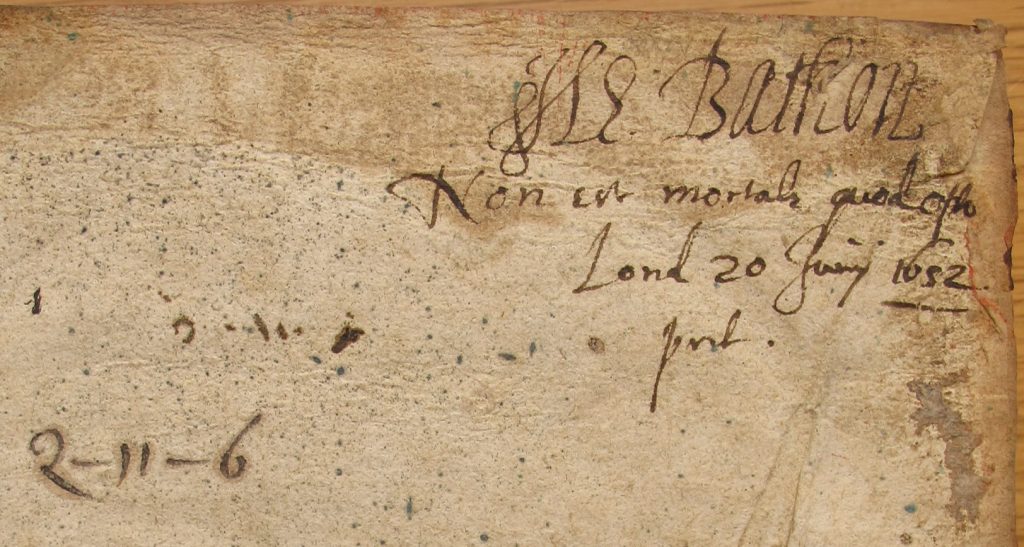 Bathon
Non est mortale quod opto
Lond 20 Junij 1652.
pret.
1
2-11-6